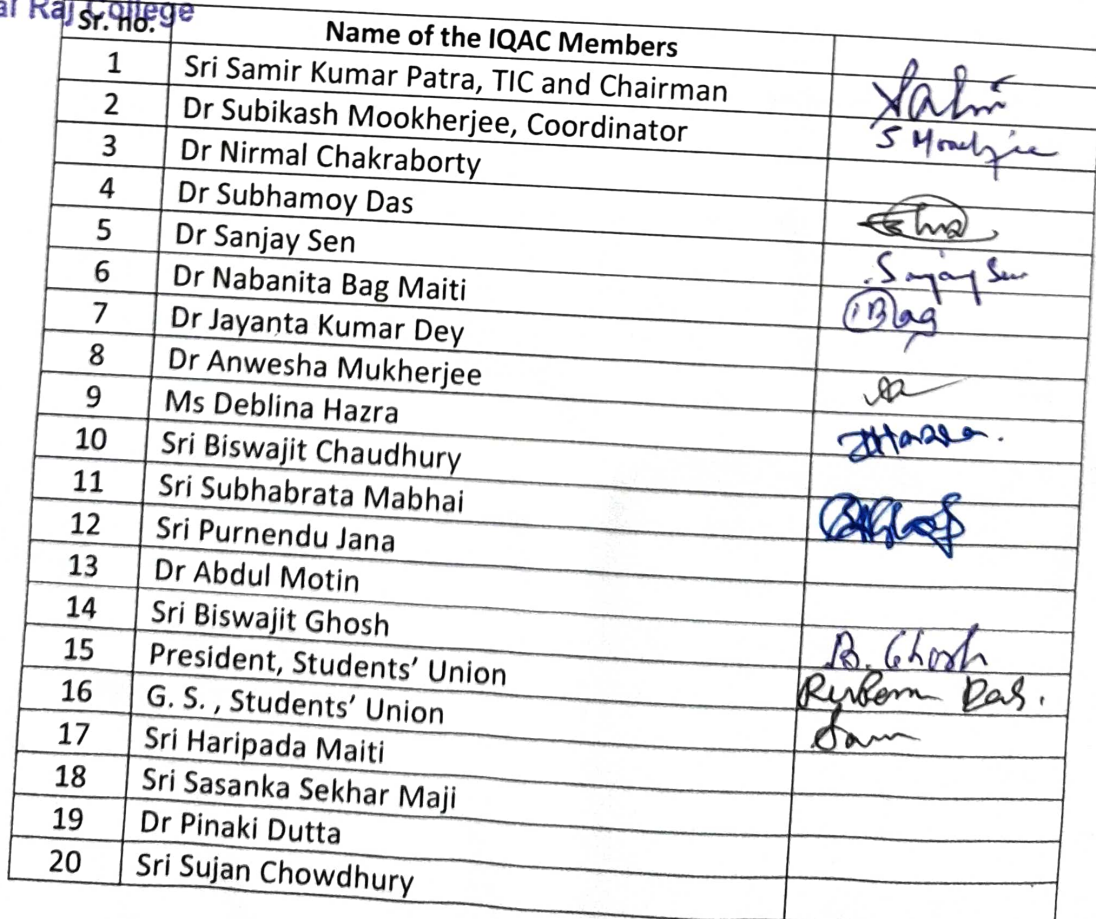 Raj College
Sr. no. Name of the IQAC Members
1 Sri Samir Kumar Patra, TIC and Chairman
2 Dr Subikash Mookherjee, Coordinator
3 Dr Nirmal Chakraborty
4 Dr Subhamoy Das
5 Dr Sanjay Sen Sanjay Sen
6 Dr Nabanita Bag Maiti Bag
7 Dr Jayanta Kumar Dey
8 Dr Anwesha Mukherjee
9 Ms Deblina Hazra
10 Sri Biswajit Chaudhury
11 Sri Subhabrata Mabhai
12 Sri Purnendu Jana
13 Dr Abdul Motin
14 Sri Biswajit Ghosh B. Ghosh
15 President, Students' Union Das.
16 G. S. , Students' Union
17 Sri Haripada Maiti
18 Sri Sasanka Sekhar Maji
19 Dr Pinaki Dutta
20 Sri Sujan Chowdhury